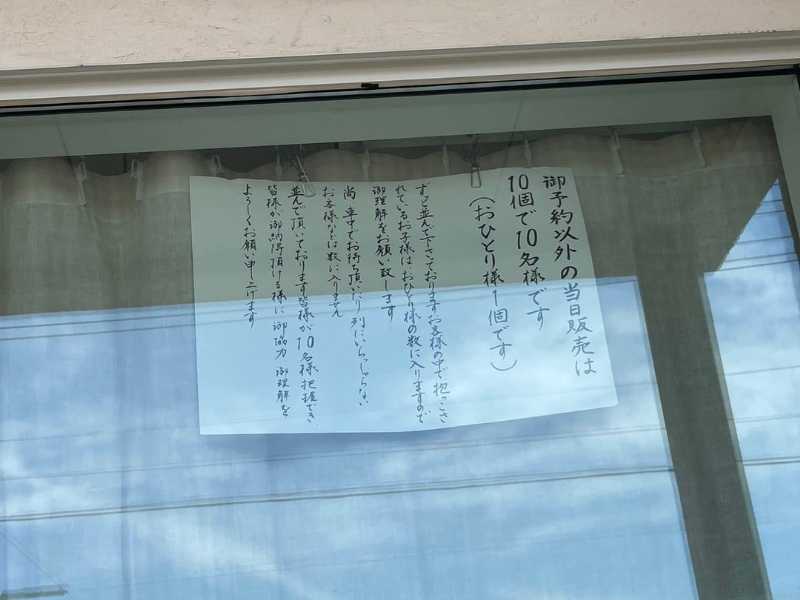 御予約以外の当日販売は
10個で10名様です
(おひとり様1個です)
ずっと並んで下さっておりますお客様の中で抱っこさ
れているお子様は、おひとり様の数に入りますので
御理解をお願い致します
尚 車中でお待ち頂いたり列にいらっしゃらない
お客様などは数に入りません
並んで頂いております皆様が10名様把握でき
皆様が御納得頂ける様に御協力 御理解を
よろしくお願い申し上げます